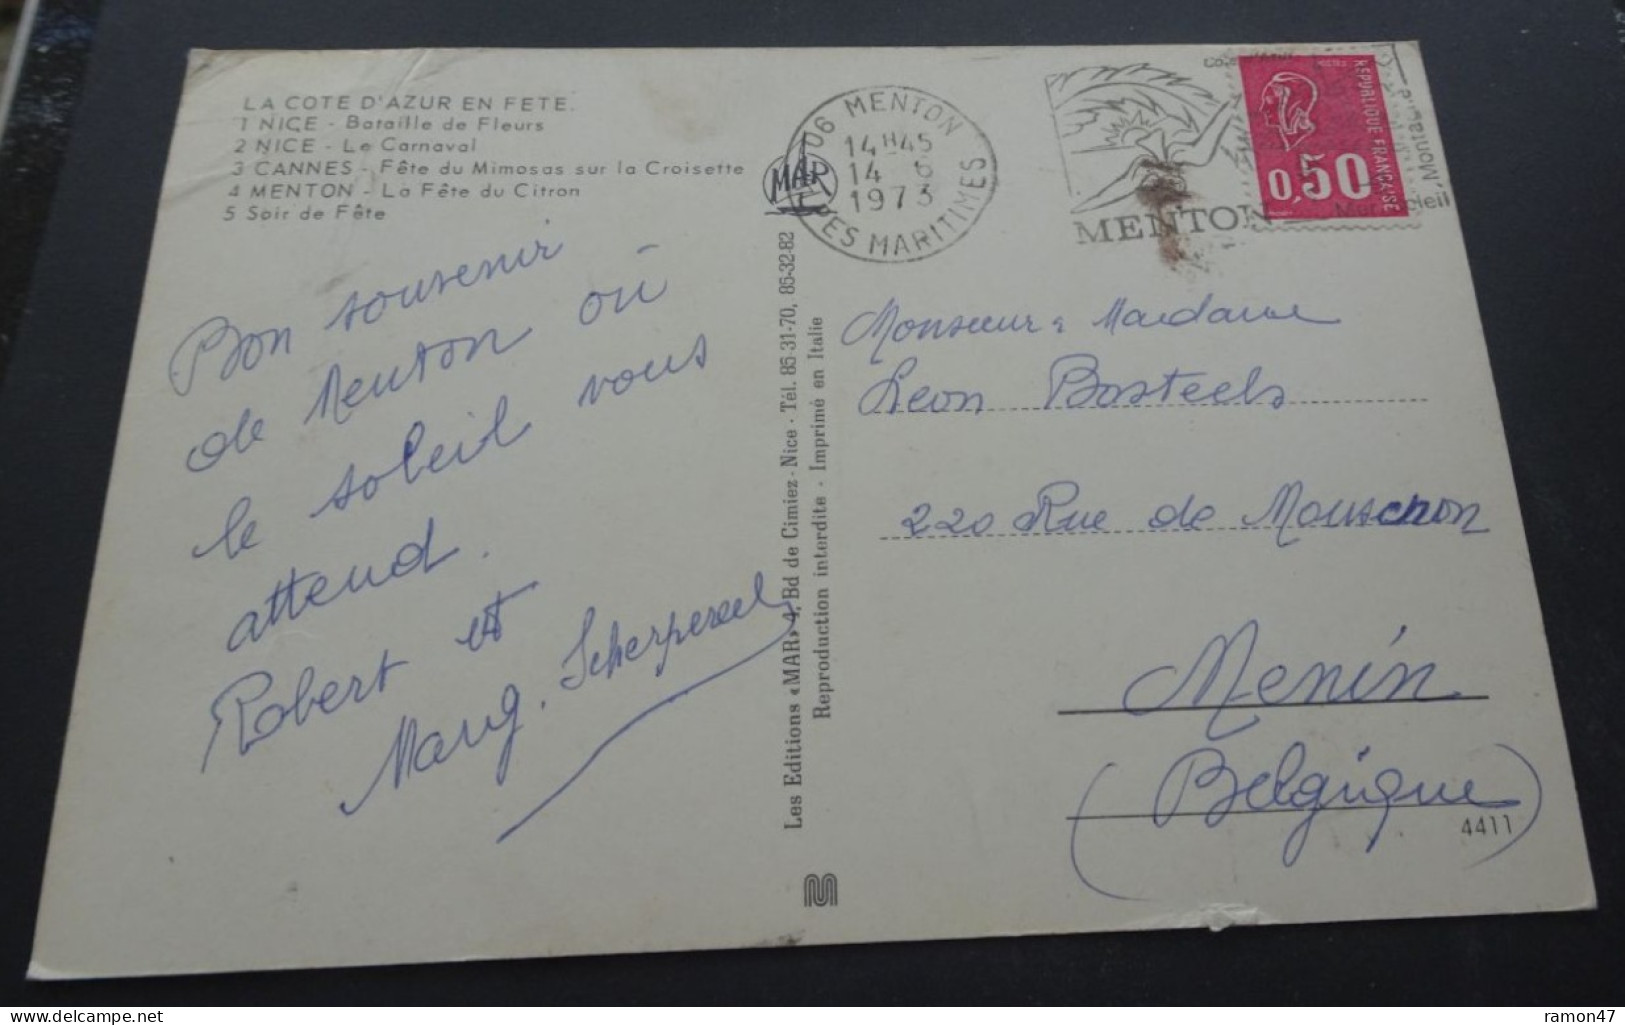 LA COTE D'AZUR EN FETE.
1 NICE - Bataille de Fleurs
2 NICE - Le Carnaval
3 CANNES - Fête du Mimosas sur la Croisette
4 MENTON - La Fête du Citron
5 Soir de Fête
Bon souvenir
de Menton où
le soleil vous
attend.
Robert et
Marg. Scherpereel
MAR
Les Editions «MAR» 4, Bd de Cimiez - Nice - Tél. 85-31-70, 85-32-82
Reproduction interdite - Imprimé en Italie
06 MENTON
14H45
14 6
1973
MARITIMES
MENTON
POSTES
REPUBLIQUE FRANÇAISE
0,50
Monsieur & Madame
Leon Bosteels
220 Rue de Mouscron
Menin
(Belgique)
4411
delcampe.net
ramon47